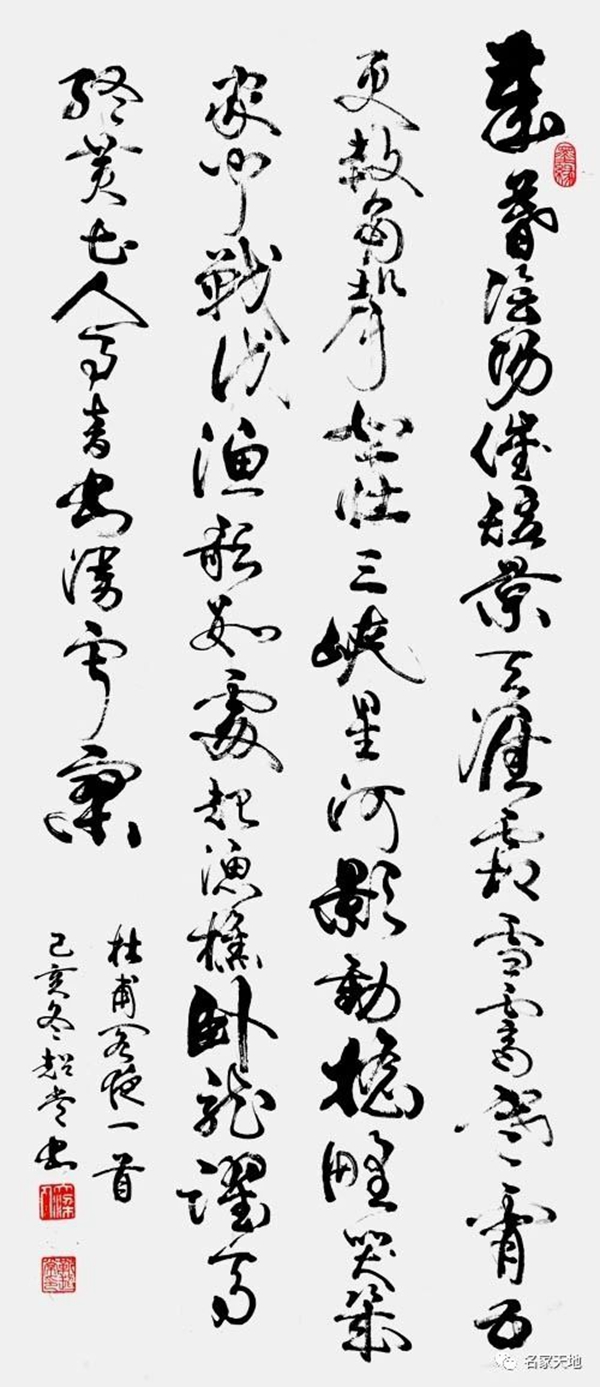 歲暮陰陽催短景天涯霜雪霽寒霄五
更鼓角聲悲壯三峽星河影動搖野哭幾
家聞戰伐漁歌數處起漁樵卧龍躍馬
終黄土人事音書漫寂寥
杜甫閣夜一首
己亥冬書
名家天地